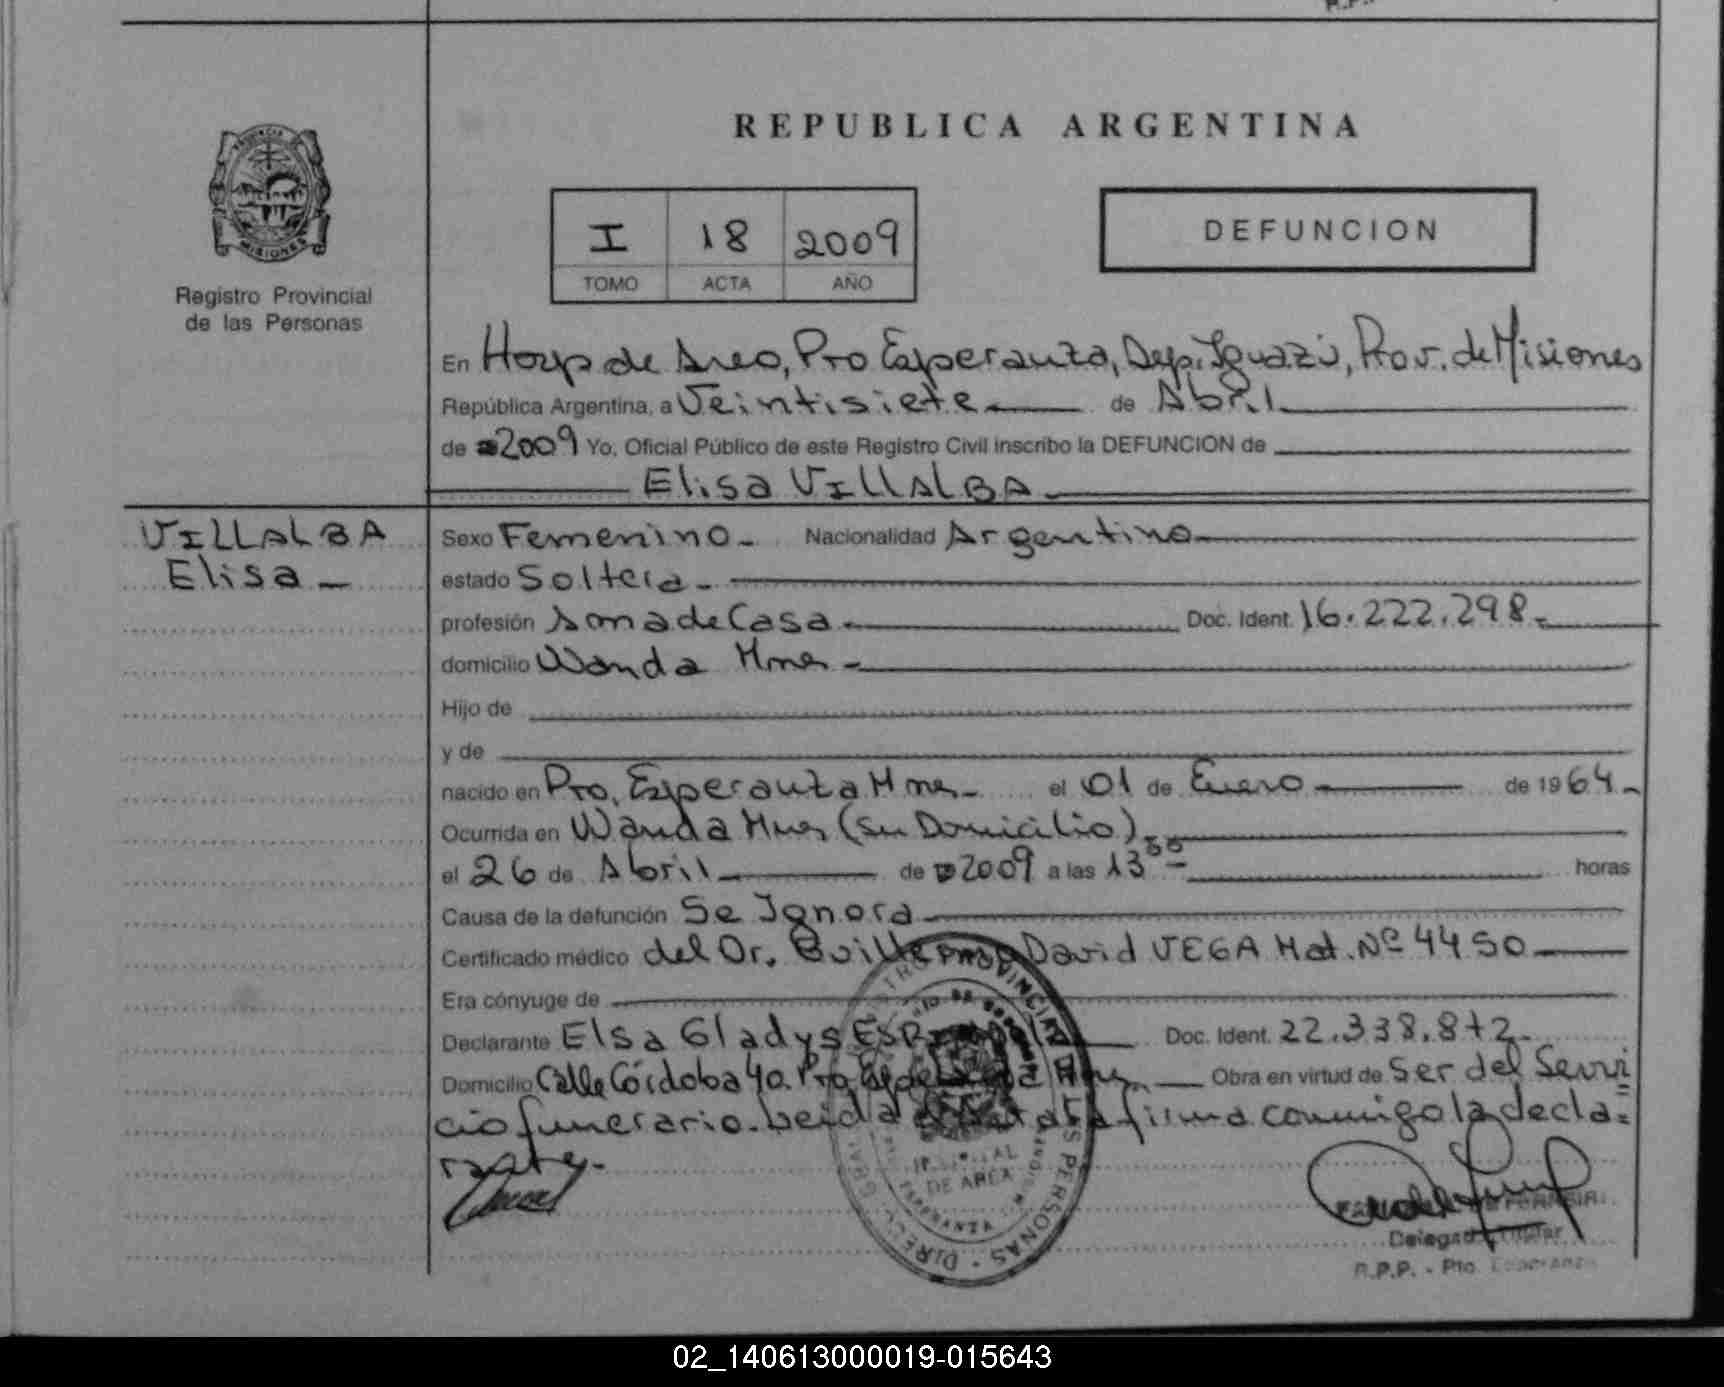 REPUBLICA ARGENTINA
PROVINCIA
MISIONES
Registro Provincial
de las Personas
I 18 2009
TOMO ACTA AÑO
DEFUNCION
En Hosp de Area, Pto Esperanza, Dep. Iguazú, Prov. de Misiones
República Argentina, a Veintisiete de Abril
de 2009 Yo, Oficial Público de este Registro Civil inscribo la DEFUNCION de
Elisa VILLALBA
VILLALBA
Elisa
Sexo Femenino Nacionalidad Argentina
estado Soltera
profesión Ama de Casa Doc. Ident. 16.222.298
domicilio Wanda Mnes
Hijo de
y de
nacido en Pto. Esperanza Mnes el 01 de Enero de 1964
Ocurrida en Wanda Mnes (su Domicilio)
el 26 de Abril de 2009 a las 13 horas
Causa de la defunción Se Ignora
Certificado médico del Dr. Guillermo David VEGA Mat. Nº 4450
Era cónyuge de
Declarante Elsa Gladys Doc. Ident. 22.338.872
Domicilio Calle Córdoba 40. Pto Mnes Obra en virtud de Ser del Servi
cio funerario. Leida el Acta firma conmigo la decla=
rante.
DE AREA
ESPERANZA
Delegad Titular
R.P.P. - Pto. Esperanza
02_140613000019-015643